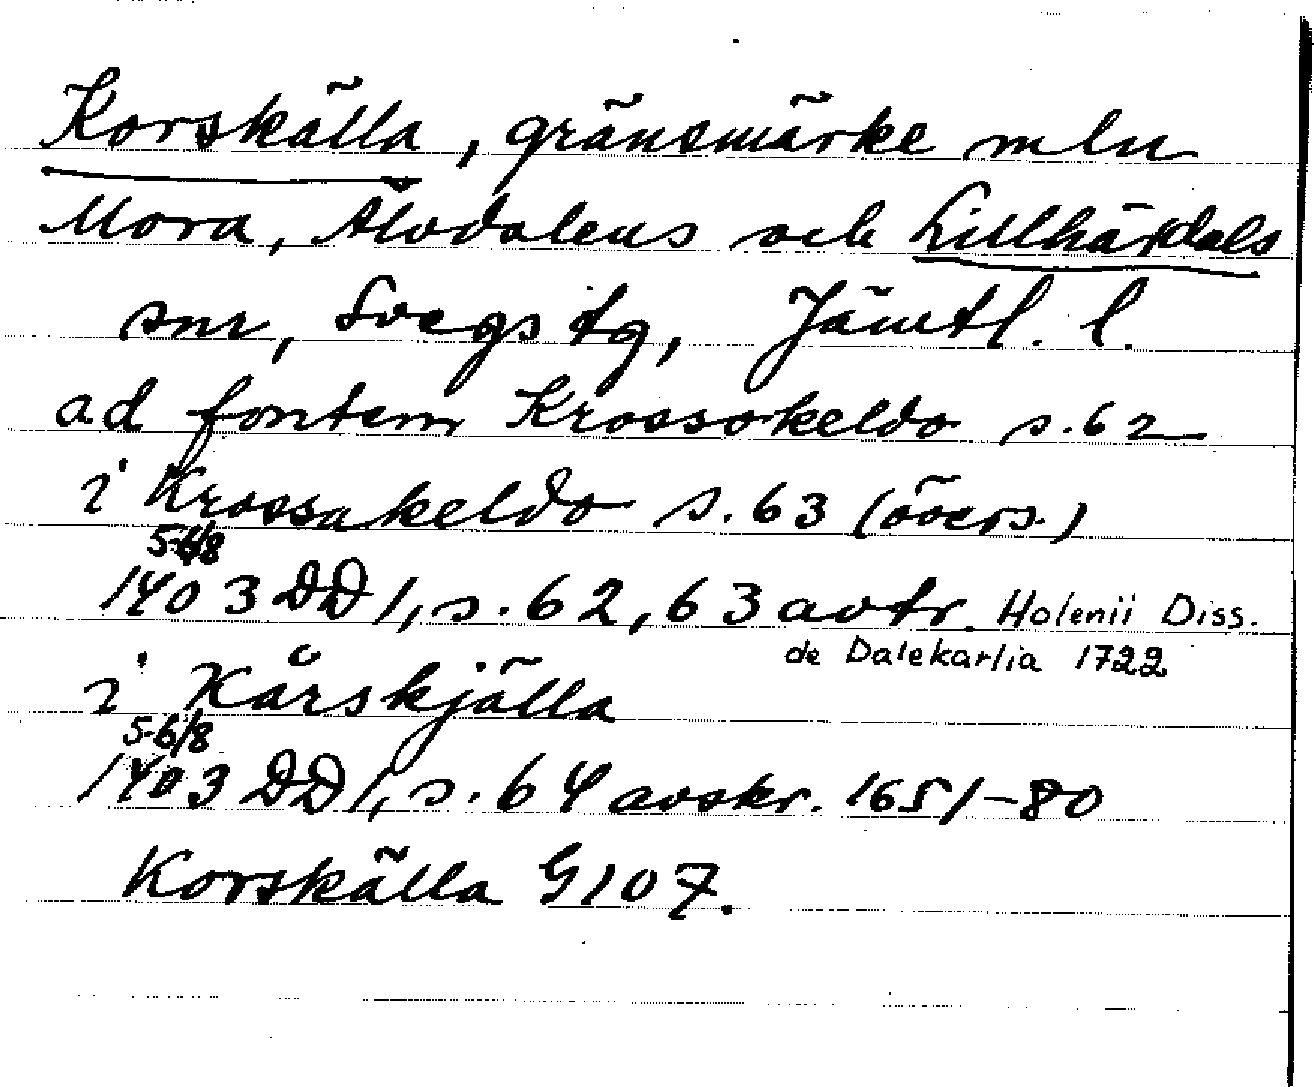 Korskälla, gränsmärke mln
Mora, Älvdalens och Lillhärdals
snr, Svegs tg, Jämtl. l.
ad fontem Krossokeldo s. 62
i Krossakeldo s. 63 (övers.)
5-6/8
1403 DD 1, s. 62, 63 avtr. Holenii Diss.
de Dalekarlia 1722
i Kårskjälla
5-6/8
1403 DD 1, s. 64 avskr. 1651-80
Korskälla G107.